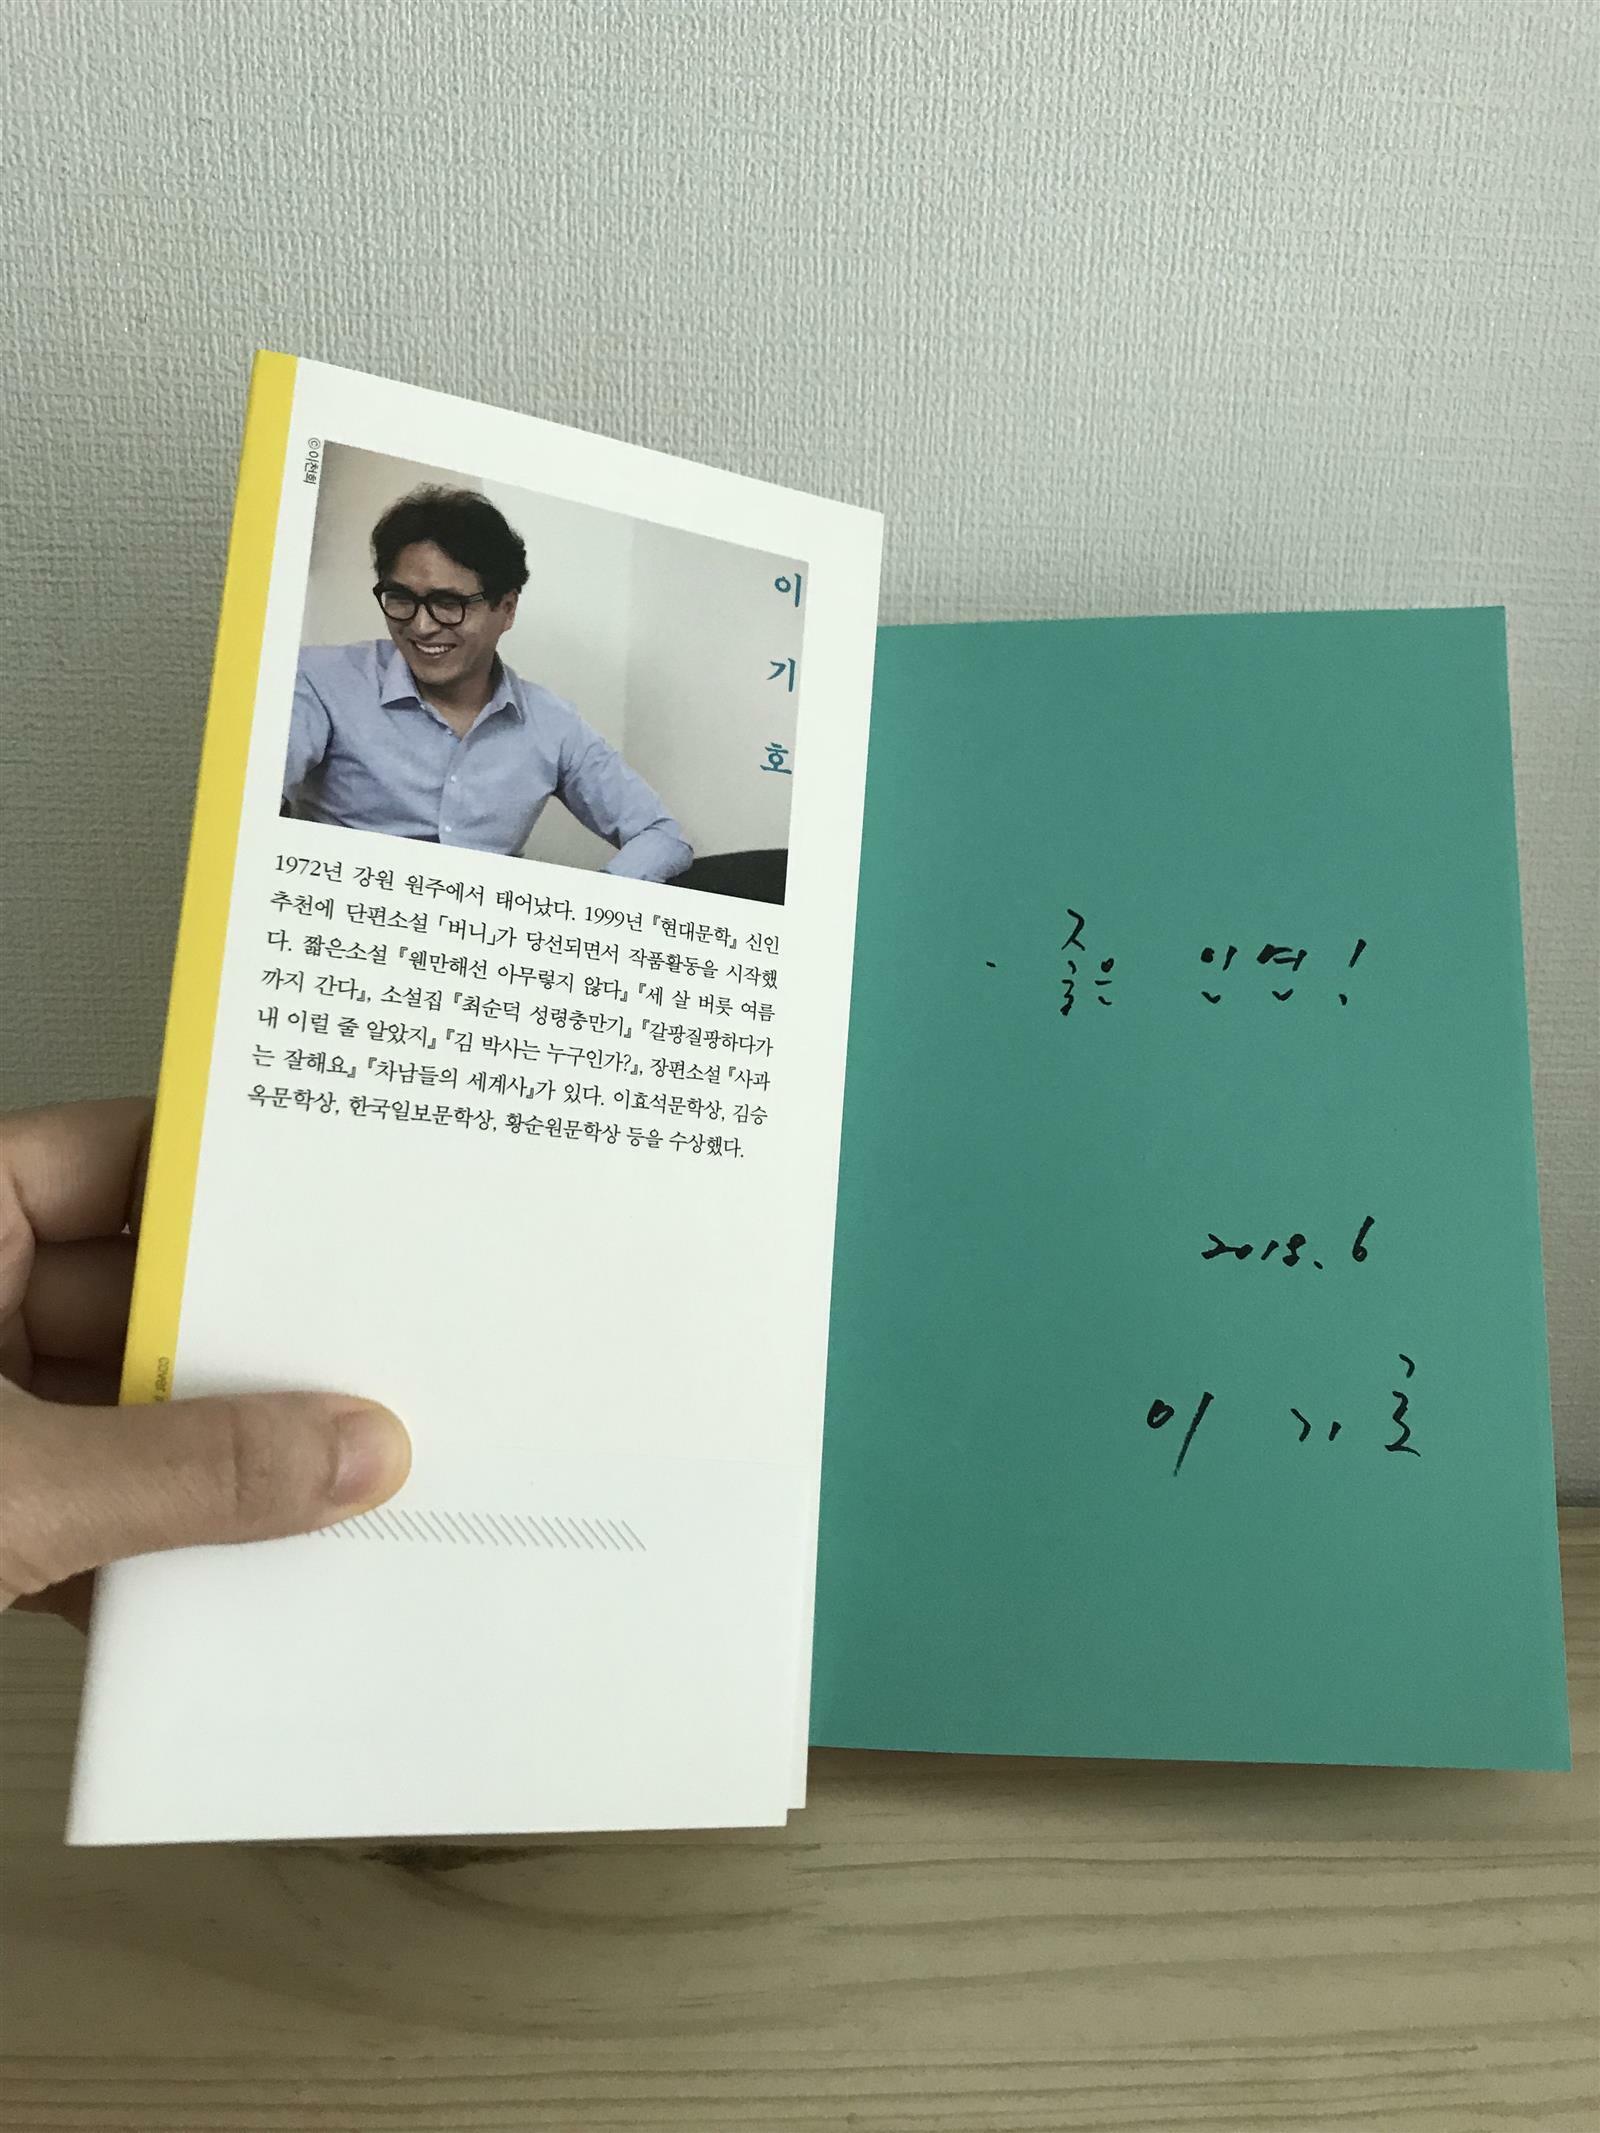 ©이천희
이
기
호
1972년 강원 원주에서 태어났다. 1999년 『현대문학』 신인
추천에 단편소설 「버니」가 당선되면서 작품활동을 시작했
다. 짧은소설 『웬만해선 아무렇지 않다』 『세 살 버릇 여름
까지 간다』, 소설집 『최순덕 성령충만기』 『갈팡질팡하다가
내 이럴 줄 알았지』 『김 박사는 누구인가?』, 장편소설 『사과
는 잘해요』 『차남들의 세계사』가 있다. 이효석문학상, 김승
옥문학상, 한국일보문학상, 황순원문학상 등을 수상했다.
cover
좋은 인연!
2018. 6
이기호